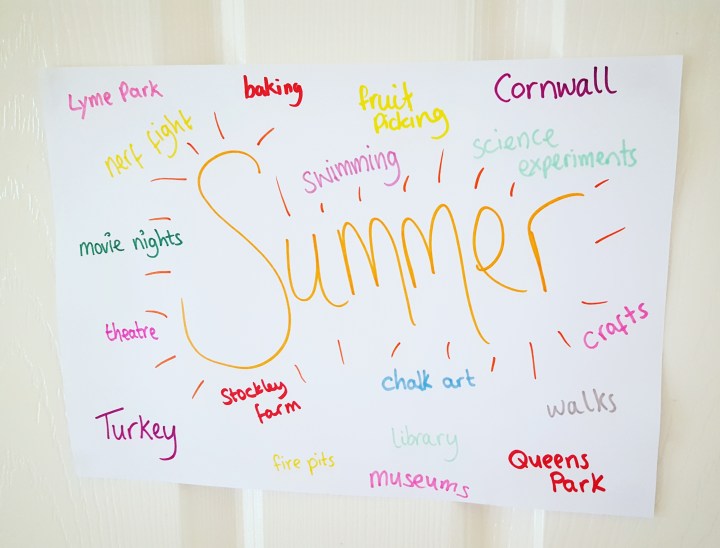 Lyme Park
baking
fruit
picking
Cornwall
nerf fight
swimming
science
experiments
movie nights
Summer
theatre
crafts
Stockley
farm
chalk art
walks
Turkey
library
fire pits
museums
Queens
Park